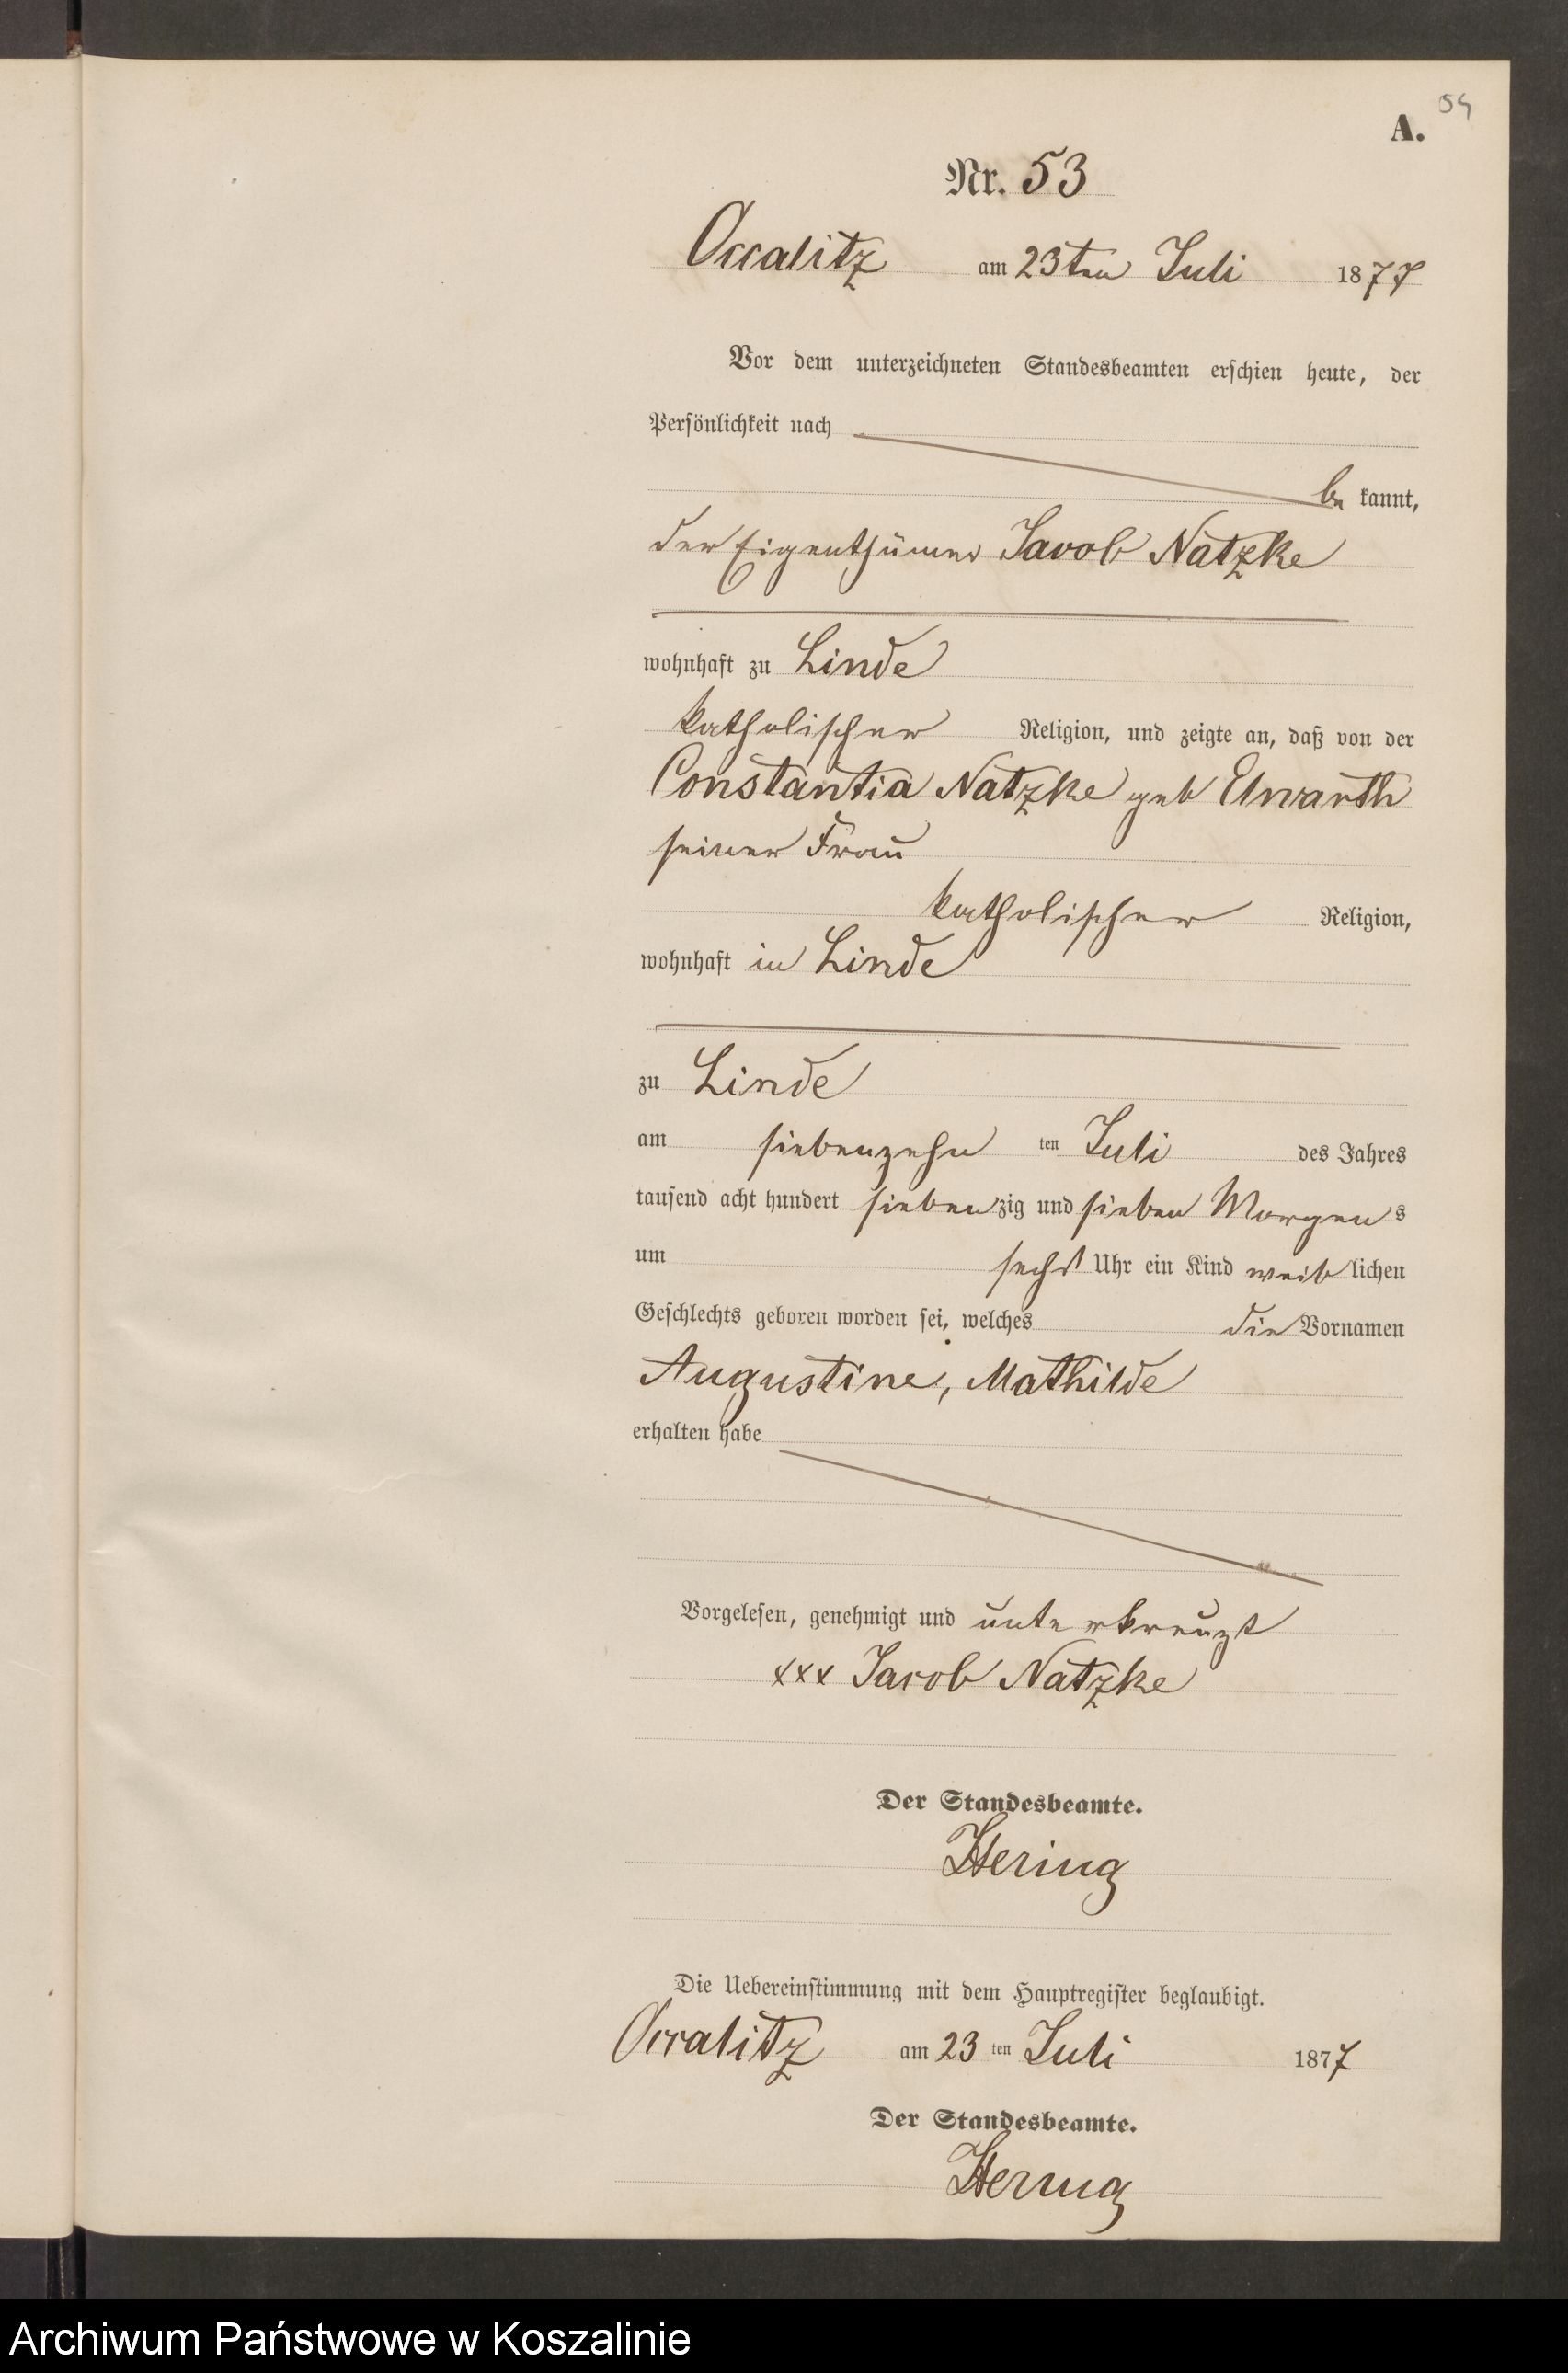 54
A.
Nr. 53
Occalitz am 23ten Juli 1877
Vor dem unterzeichneten Standesbeamten erschien heute, der
Persönlichkeit nach
be kannt,
der Eigenthümer Jacob Natzke
wohnhaft zu Linde
katholischer Religion, und zeigte an, daß von der
Constantia Natzke geb Elwarth
seiner Frau
katholischer Religion,
wohnhaft in Linde
zu Linde
am siebenzehn ten Juli des Jahres
tausend acht hundert siebenzig und sieben Morgens
um sechs Uhr ein Kind weiblichen
Geschlechts geboren worden sei, welches die Vornamen
Augustine, Mathilde
erhalten habe
Vorgelesen, genehmigt und unterkreuzt
xxx Jacob Natzke
Der Standesbeamte.
Hering
Die Uebereinstimmung mit dem Hauptregister beglaubigt.
Occalitz am 23 ten Juli 1877
Der Standesbeamte.
Hering
Archiwum Państwowe w Koszalinie